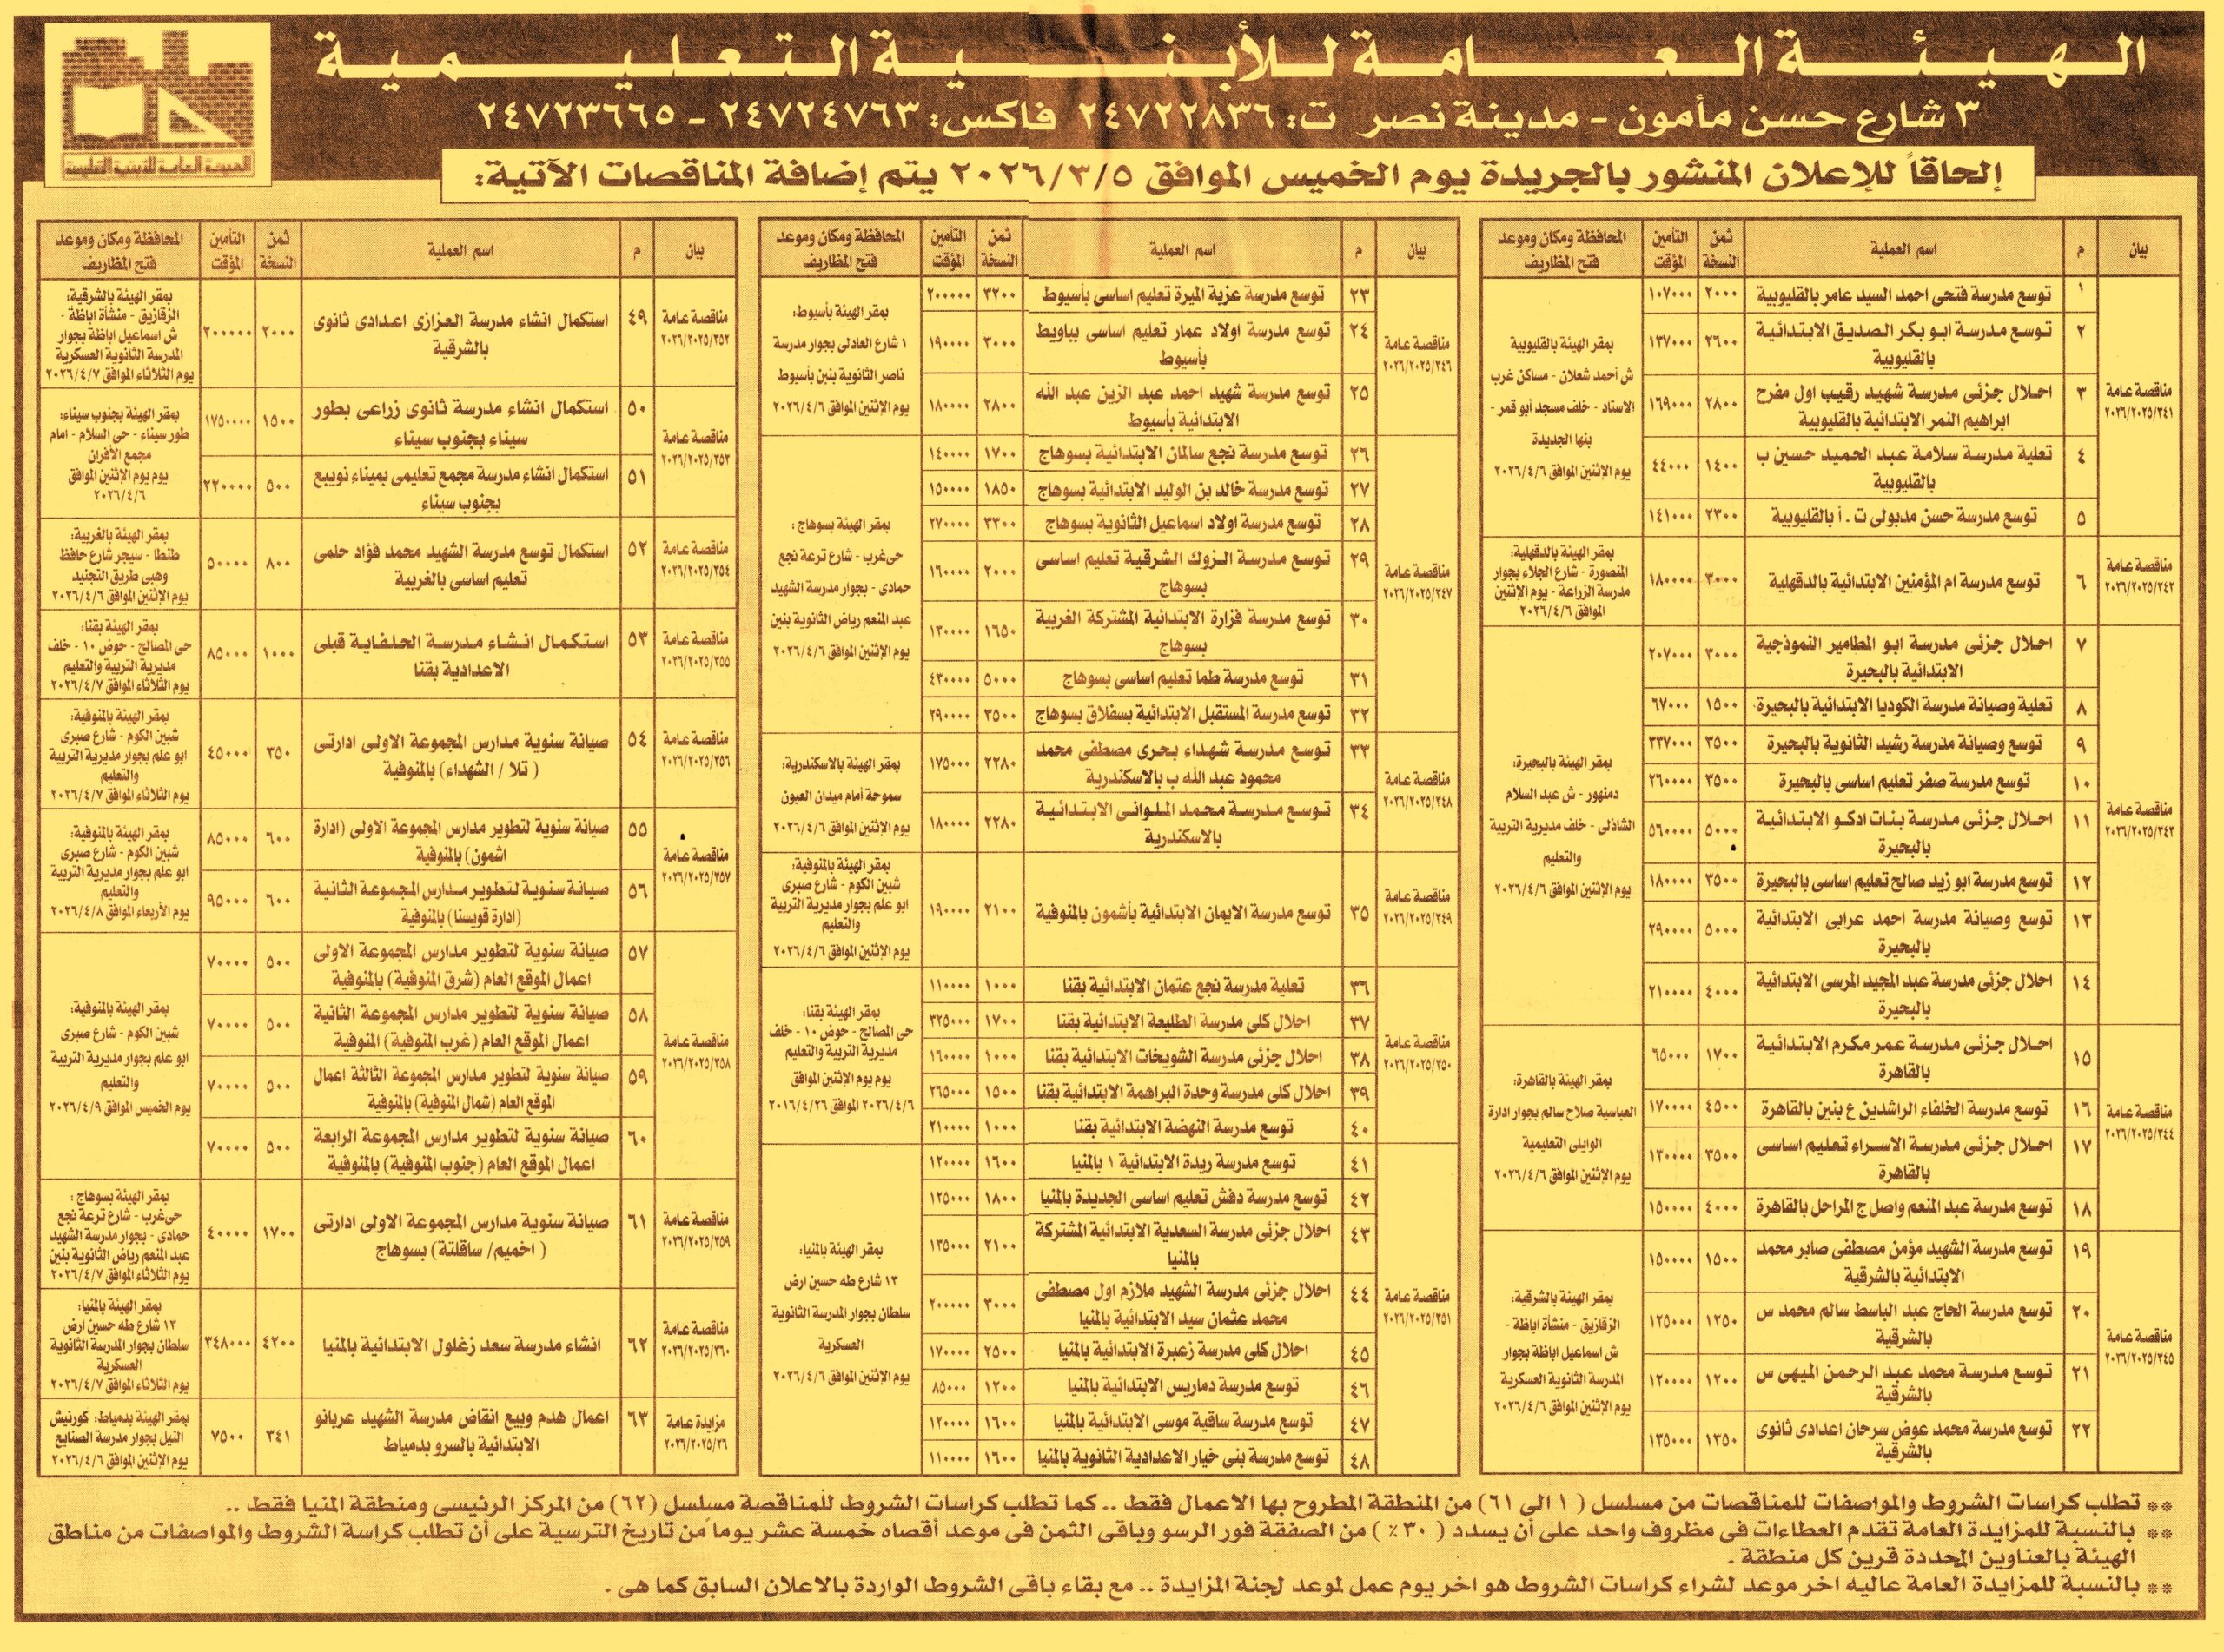 الهيئة العامة للأبنية التعليمية
٣ شارع حسن مأمون - مدينة نصر ت: ٢٤٧٢٢٨٣٦ فاكس: ٢٤٧٢٤٧٦٣ - ٢٤٧٢٣٦٦٥
إلحاقاً للإعلان المنشور بالجريدة يوم الخميس الموافق ٢٠٢٦/٣/٥ يتم إضافة المناقصات الآتية:
بيان م اسم العملية ثمن النسخة التأمين المؤقت المحافظة ومكان وموعد فتح المظاريف
مناقصة عامة ٢٠٢٦/٢٠٢٥/٣٤١
١ توسع مدرسة فتحى احمد السيد عامر بالقليوبية ٢٠٠٠ ١٠٧٠٠٠
٢ توسع مدرسة ابو بكر الصديق الابتدائية بالقليوبية ٢٦٠٠ ١٣٧٠٠٠
٣ احلال جزئى مدرسة شهيد رقيب اول مفرح ابراهيم النمر الابتدائية بالقليوبية ٢٨٠٠ ١٦٩٠٠٠
٤ تعلية مدرسة سلامة عبد الحميد حسين ب بالقليوبية ١٤٠٠ ٤٤٠٠٠
٥ توسع مدرسة حسن مدبولى ت . أ بالقليوبية ٢٣٠٠ ١٤١٠٠٠
بمقر الهيئة بالقليوبية
ش أحمد شعلان - مساكن غرب
الاستاد - خلف مسجد أبو قمر -
بنها الجديدة
يوم الإثنين الموافق ٢٠٢٦/٤/٦
مناقصة عامة ٢٠٢٦/٢٠٢٥/٣٤٢
٦ توسع مدرسة ام المؤمنين الابتدائية بالدقهلية ٣٠٠٠ ١٨٠٠٠٠
بمقر الهيئة بالدقهلية:
المنصورة - شارع الجلاء بجوار
مدرسة الزراعة - يوم الإثنين
الموافق ٢٠٢٦/٤/٦
مناقصة عامة ٢٠٢٦/٢٠٢٥/٣٤٣
٧ احلال جزئى مدرسة ابو المطامير النموذجية الابتدائية بالبحيرة ٣٠٠٠ ٢٠٧٠٠٠
٨ تعلية وصيانة مدرسة الكوديا الابتدائية بالبحيرة ١٥٠٠ ٦٧٠٠٠
٩ توسع وصيانة مدرسة رشيد الثانوية بالبحيرة ٣٥٠٠ ٣٣٧٠٠٠
١٠ توسع مدرسة صفر تعليم اساسى بالبحيرة ٣٥٠٠ ٢٦٠٠٠٠
١١ احلال جزئى مدرسة بنات ادكو الابتدائية بالبحيرة ٥٠٠٠ ٥٦٠٠٠٠
١٢ توسع مدرسة ابو زيد صالح تعليم اساسى بالبحيرة ٣٥٠٠ ١٨٠٠٠٠
١٣ توسع وصيانة مدرسة احمد عرابى الابتدائية بالبحيرة ٥٠٠٠ ٢٩٠٠٠٠
١٤ احلال جزئى مدرسة عبد المجيد المرسى الابتدائية بالبحيرة ٤٠٠٠ ٢١٠٠٠٠
بمقر الهيئة بالبحيرة:
دمنهور - ش عبد السلام
الشاذلى - خلف مديرية التربية
والتعليم
يوم الإثنين الموافق ٢٠٢٦/٤/٦
مناقصة عامة ٢٠٢٦/٢٠٢٥/٣٤٤
١٥ احلال جزئى مدرسة عمر مكرم الابتدائية بالقاهرة ١٧٠٠ ٦٥٠٠٠
١٦ توسع مدرسة الخلفاء الراشدين ع بنين بالقاهرة ٤٥٠٠ ١٧٠٠٠٠
١٧ احلال جزئى مدرسة الاسراء تعليم اساسى بالقاهرة ٣٥٠٠ ١٣٠٠٠٠
١٨ توسع مدرسة عبد المنعم واصل ج المراحل بالقاهرة ٤٠٠٠ ١٥٠٠٠٠
بمقر الهيئة بالقاهرة:
العباسية صلاح سالم بجوار ادارة
الوايلى التعليمية
يوم الإثنين الموافق ٢٠٢٦/٤/٦
مناقصة عامة ٢٠٢٦/٢٠٢٥/٣٤٥
١٩ توسع مدرسة الشهيد مؤمن مصطفى صابر محمد الابتدائية بالشرقية ١٥٠٠ ١٥٠٠٠٠
٢٠ توسع مدرسة الحاج عبد الباسط سالم محمد س بالشرقية ١٢٥٠ ١٢٥٠٠٠
٢١ توسع مدرسة محمد عبد الرحمن الميهى س بالشرقية ١٢٠٠ ١٢٠٠٠٠
٢٢ توسع مدرسة محمد عوض سرحان اعدادى ثانوى بالشرقية ١٣٥٠ ١٣٥٠٠٠
بمقر الهيئة بالشرقية:
الزقازيق - منشأة اباظة -
ش اسماعيل اباظة بجوار
المدرسة الثانوية العسكرية
يوم الإثنين الموافق ٢٠٢٦/٤/٦
بيان م اسم العملية ثمن النسخة التأمين المؤقت المحافظة ومكان وموعد فتح المظاريف
مناقصة عامة ٢٠٢٦/٢٠٢٥/٣٤٦
٢٣ توسع مدرسة عزبة الميرة تعليم اساسى بأسيوط ٣٢٠٠ ٢٠٠٠٠٠
٢٤ توسع مدرسة اولاد عمار تعليم اساسى بباويط بأسيوط ٣٠٠٠ ١٩٠٠٠٠
٢٥ توسع مدرسة شهيد احمد عبد الزين عبد الله الابتدائية بأسيوط ٢٨٠٠ ١٨٠٠٠٠
بمقر الهيئة بأسيوط:
١ شارع العادلى بجوار مدرسة
ناصر الثانوية بنين بأسيوط
يوم الإثنين الموافق ٢٠٢٦/٤/٦
مناقصة عامة ٢٠٢٦/٢٠٢٥/٣٤٧
٢٦ توسع مدرسة نجع سالمان الابتدائية بسوهاج ١٧٠٠ ١٤٠٠٠٠
٢٧ توسع مدرسة خالد بن الوليد الابتدائية بسوهاج ١٨٥٠ ١٥٠٠٠٠
٢٨ توسع مدرسة اولاد اسماعيل الثانوية بسوهاج ٣٣٠٠ ٢٧٠٠٠٠
٢٩ توسع مدرسة الزوك الشرقية تعليم اساسى بسوهاج ٢٠٠٠ ١٦٠٠٠٠
٣٠ توسع مدرسة فزارة الابتدائية المشتركة الغربية بسوهاج ١٦٥٠ ١٣٠٠٠٠
٣١ توسع مدرسة طما تعليم اساسى بسوهاج ٥٠٠٠ ٤٣٠٠٠٠
٣٢ توسع مدرسة المستقبل الابتدائية بسفلاق بسوهاج ٣٥٠٠ ٢٩٠٠٠٠
بمقر الهيئة بسوهاج :
حى غرب - شارع ترعة نجع
حمادى - بجوار مدرسة الشهيد
عبد المنعم رياض الثانوية بنين
يوم الإثنين الموافق ٢٠٢٦/٤/٦
مناقصة عامة ٢٠٢٦/٢٠٢٥/٣٤٨
٣٣ توسع مدرسة شهداء بحرى مصطفى محمد محمود عبد الله ب بالاسكندرية ٢٢٨٠ ١٧٥٠٠٠
٣٤ توسع مدرسة محمد الملوانى الابتدائية بالاسكندرية ٢٢٨٠ ١٨٠٠٠٠
بمقر الهيئة بالاسكندرية:
سموحة أمام ميدان العيون
يوم الإثنين الموافق ٢٠٢٦/٤/٦
مناقصة عامة ٢٠٢٦/٢٠٢٥/٣٤٩
٣٥ توسع مدرسة الايمان الابتدائية بأشمون بالمنوفية ٢١٠٠ ١٩٠٠٠٠
بمقر الهيئة بالمنوفية:
شبين الكوم - شارع صبرى
ابو علم بجوار مديرية التربية
والتعليم
يوم الإثنين الموافق ٢٠٢٦/٤/٦
مناقصة عامة ٢٠٢٦/٢٠٢٥/٣٥٠
٣٦ تعلية مدرسة نجع عتمان الابتدائية بقنا ١٠٠٠ ١١٠٠٠٠
٣٧ احلال كلى مدرسة الطليعة الابتدائية بقنا ١٧٠٠ ٣٢٥٠٠٠
٣٨ احلال جزئى مدرسة الشويخات الابتدائية بقنا ١٠٠٠ ١٦٠٠٠٠
٣٩ احلال كلى مدرسة وحدة البراهمة الابتدائية بقنا ١٥٠٠ ٢٦٥٠٠٠
٤٠ توسع مدرسة النهضة الابتدائية بقنا ١٠٠٠ ٢١٠٠٠٠
بمقر الهيئة بقنا:
حى المصالح - حوض ١٠ - خلف
مديرية التربية والتعليم
يوم يوم الإثنين الموافق
٢٠٢٦/٤/٦ الموافق ٢٠١٦/٤/٢٦
مناقصة عامة ٢٠٢٦/٢٠٢٥/٣٥١
٤١ توسع مدرسة ريدة الابتدائية ١ بالمنيا ١٦٠٠ ١٢٠٠٠٠
٤٢ توسع مدرسة دفش تعليم اساسى الجديدة بالمنيا ١٨٠٠ ١٢٥٠٠٠
٤٣ احلال جزئى مدرسة السعدية الابتدائية المشتركة بالمنيا ٢١٠٠ ١٣٥٠٠٠
٤٤ احلال جزئى مدرسة الشهيد ملازم اول مصطفى محمد عثمان سيد الابتدائية بالمنيا ٣٠٠٠ ٢٠٠٠٠٠
٤٥ احلال كلى مدرسة زعبرة الابتدائية بالمنيا ٢٥٠٠ ١٧٠٠٠٠
٤٦ توسع مدرسة دماريس الابتدائية بالمنيا ١٢٠٠ ٨٥٠٠٠
٤٧ توسع مدرسة ساقية موسى الابتدائية بالمنيا ١٦٠٠ ١٢٠٠٠٠
٤٨ توسع مدرسة بنى خيار الاعدادية الثانوية بالمنيا ١٦٠٠ ١١٠٠٠٠
بمقر الهيئة بالمنيا:
١٣ شارع طه حسين ارض
سلطان بجوار المدرسة الثانوية
العسكرية
يوم الإثنين الموافق ٢٠٢٦/٤/٦
بيان م اسم العملية ثمن النسخة التأمين المؤقت المحافظة ومكان وموعد فتح المظاريف
مناقصة عامة ٢٠٢٦/٢٠٢٥/٣٥٢
٤٩ استكمال انشاء مدرسة العزازى اعدادى ثانوى بالشرقية ٢٠٠٠ ٢٠٠٠٠٠
بمقر الهيئة بالشرقية:
الزقازيق - منشأة اباظة -
ش اسماعيل اباظة بجوار
المدرسة الثانوية العسكرية
يوم الثلاثاء الموافق ٢٠٢٦/٤/٧
مناقصة عامة ٢٠٢٦/٢٠٢٥/٣٥٣
٥٠ استكمال انشاء مدرسة ثانوى زراعى بطور سيناء بجنوب سيناء ١٥٠٠ ١٧٥٠٠٠
٥١ استكمال انشاء مدرسة مجمع تعليمى بميناء نويبع بجنوب سيناء ٥٠٠ ٢٢٠٠٠٠
بمقر الهيئة بجنوب سيناء:
طور سيناء - حى السلام - امام
مجمع الأفران
يوم يوم الإثنين الموافق
٢٠٢٦/٤/٦
مناقصة عامة ٢٠٢٦/٢٠٢٥/٣٥٤
٥٢ استكمال توسع مدرسة الشهيد محمد فؤاد حلمى تعليم اساسى بالغربية ٨٠٠ ٥٠٠٠٠
بمقر الهيئة بالغربية:
طنطا - سيجر شارع حافظ
وهبى طريق التجنيد
يوم الإثنين الموافق ٢٠٢٦/٤/٦
مناقصة عامة ٢٠٢٦/٢٠٢٥/٣٥٥
٥٣ استكمال انشاء مدرسة الحلفاية قبلى الاعدادية بقنا ١٠٠٠ ٨٥٠٠٠
بمقر الهيئة بقنا:
حى المصالح - حوض ١٠ - خلف
مديرية التربية والتعليم
يوم الثلاثاء الموافق ٢٠٢٦/٤/٧
مناقصة عامة ٢٠٢٦/٢٠٢٥/٣٥٦
٥٤ صيانة سنوية مدارس المجموعة الاولى ادارتى ( تلا / الشهداء) بالمنوفية ٣٥٠ ٤٥٠٠٠
بمقر الهيئة بالمنوفية:
شبين الكوم - شارع صبرى
ابو علم بجوار مديرية التربية
والتعليم
يوم الثلاثاء الموافق ٢٠٢٦/٤/٧
مناقصة عامة ٢٠٢٦/٢٠٢٥/٣٥٧
٥٥ صيانة سنوية لتطوير مدارس المجموعة الاولى (ادارة اشمون) بالمنوفية ٦٠٠ ٨٥٠٠٠
٥٦ صيانة سنوية لتطوير مدارس المجموعة الثانية (ادارة قويسنا) بالمنوفية ٦٠٠ ٩٥٠٠٠
بمقر الهيئة بالمنوفية:
شبين الكوم - شارع صبرى
ابو علم بجوار مديرية التربية
والتعليم
يوم الأربعاء الموافق ٢٠٢٦/٤/٨
مناقصة عامة ٢٠٢٦/٢٠٢٥/٣٥٨
٥٧ صيانة سنوية لتطوير مدارس المجموعة الاولى اعمال الموقع العام (شرق المنوفية) بالمنوفية ٥٠٠ ٧٠٠٠٠
٥٨ صيانة سنوية لتطوير مدارس المجموعة الثانية اعمال الموقع العام (غرب المنوفية) المنوفية ٥٠٠ ٧٠٠٠٠
٥٩ صيانة سنوية لتطوير مدارس المجموعة الثالثة اعمال الموقع العام (شمال المنوفية) بالمنوفية ٥٠٠ ٧٠٠٠٠
٦٠ صيانة سنوية لتطوير مدارس المجموعة الرابعة اعمال الموقع العام (جنوب المنوفية) بالمنوفية ٥٠٠ ٧٠٠٠٠
بمقر الهيئة بالمنوفية:
شبين الكوم - شارع صبرى
ابو علم بجوار مديرية التربية
والتعليم
يوم الخميس الموافق ٢٠٢٦/٤/٩
مناقصة عامة ٢٠٢٦/٢٠٢٥/٣٥٩
٦١ صيانة سنوية مدارس المجموعة الاولى ادارتى ( اخميم/ ساقلتة) بسوهاج ١٧٠٠ ٤٠٠٠٠
بمقر الهيئة بسوهاج :
حى غرب - شارع ترعة نجع
حمادى - بجوار مدرسة الشهيد
عبد المنعم رياض الثانوية بنين
يوم الثلاثاء الموافق ٢٠٢٦/٤/٧
مناقصة عامة ٢٠٢٦/٢٠٢٥/٣٦٠
٦٢ انشاء مدرسة سعد زغلول الابتدائية بالمنيا ٤٢٠٠ ٣٤٨٠٠٠
بمقر الهيئة بالمنيا:
١٣ شارع طه حسين ارض
سلطان بجوار المدرسة الثانوية
العسكرية
يوم الثلاثاء الموافق ٢٠٢٦/٤/٧
مزايدة عامة ٢٠٢٦/٢٠٢٥/٢٦
٦٣ اعمال هدم وبيع انقاض مدرسة الشهيد عربانو الابتدائية بالسرو بدمياط ٣٤١ ٧٥٠٠
بمقر الهيئة بدمياط: كورنيش
النيل بجوار مدرسة الصنايع
يوم الإثنين الموافق ٢٠٢٦/٤/٦
** تطلب كراسات الشروط والمواصفات للمناقصات من مسلسل ( ١ الى ٦١) من المنطقة المطروح بها الاعمال فقط .. كما تطلب كراسات الشروط للمناقصة مسلسل (٦٢) من المركز الرئيسى ومنطقة المنيا فقط ..
** بالنسبة للمزايدة العامة تقدم العطاءات فى مظروف واحد على أن يسدد ( ٣٠٪ ) من الصفقة فور الرسو وباقى الثمن فى موعد أقصاه خمسة عشر يوما من تاريخ الترسية على أن تطلب كراسة الشروط والمواصفات من مناطق
الهيئة بالعناوين المحددة قرين كل منطقة .
** بالنسبة للمزايدة العامة عاليه اخر موعد لشراء كراسات الشروط هو اخر يوم عمل لموعد لجنة المزايدة .. مع بقاء باقى الشروط الواردة بالاعلان السابق كما هى .
الهيئة العامة للأبنية التعليمية